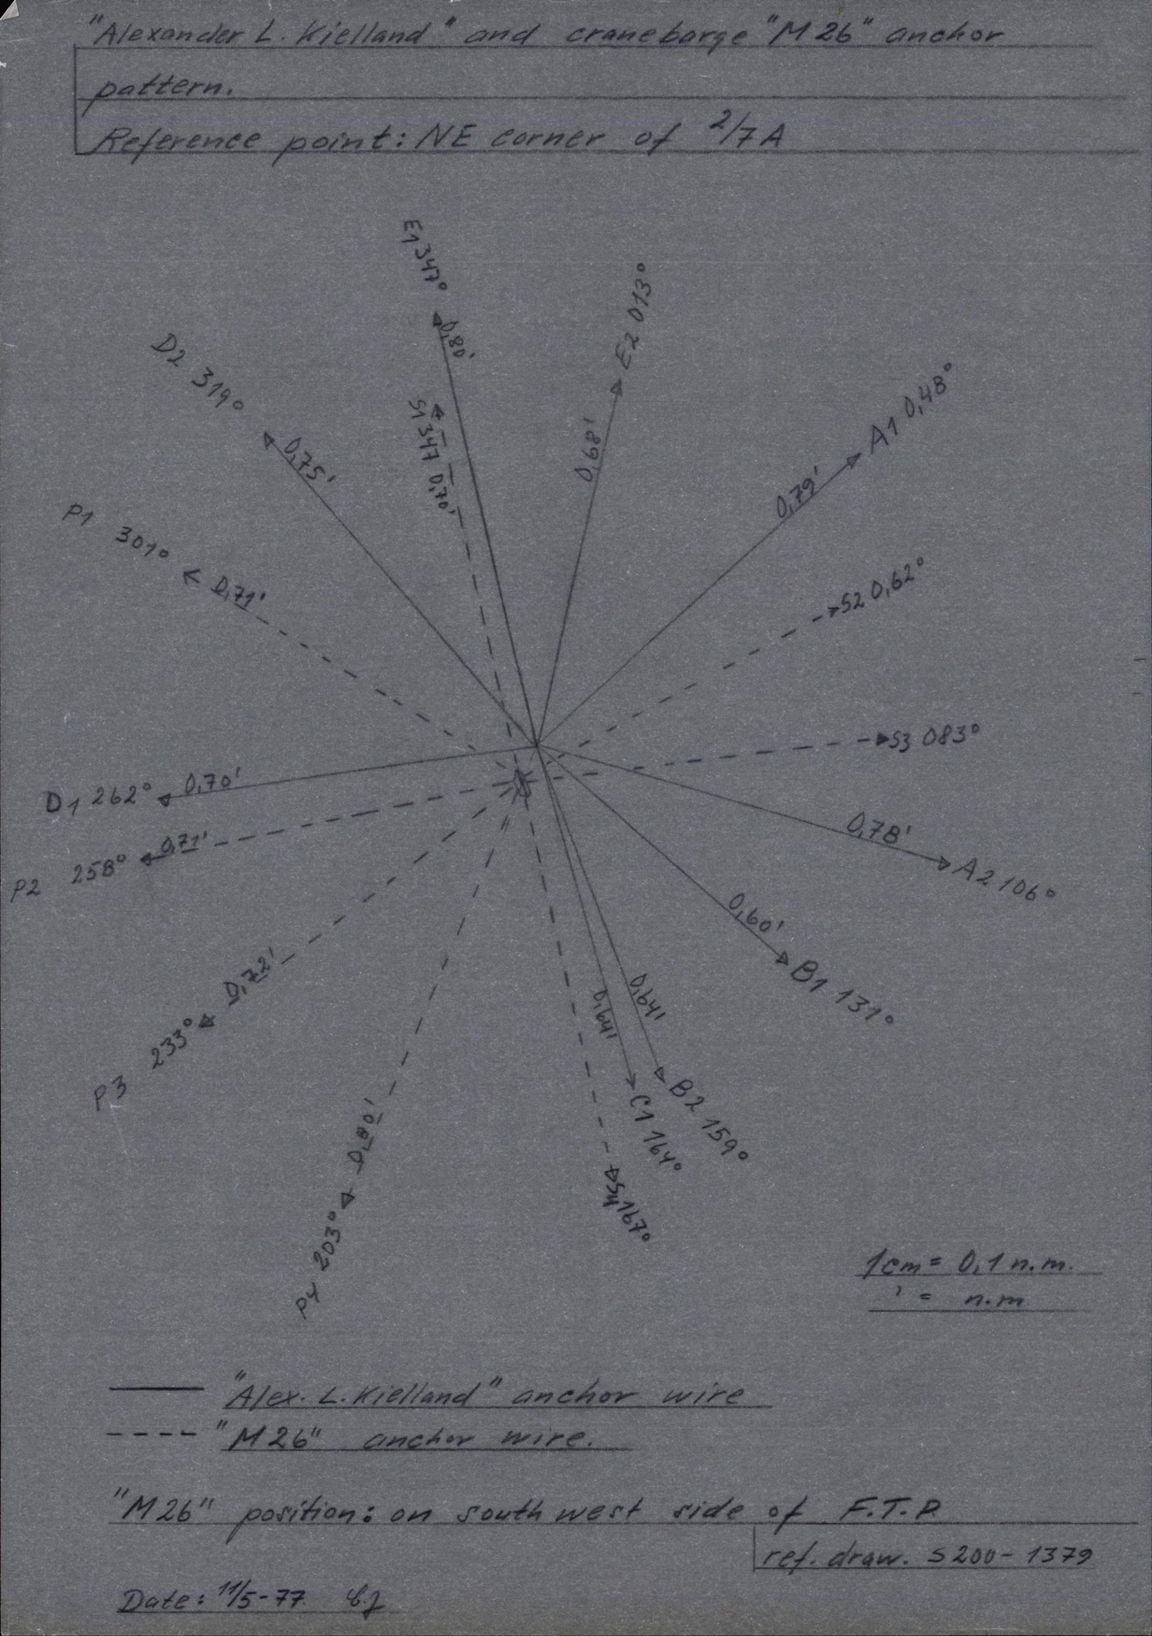 "Alexander L. Kielland" and cranebarge "M 26" anchor
pattern.
Reference point: NE corner of 2/7A
E1 347°
0,80'
E2 013°
0,68'
D2 319°
0,75'
S1 347 0,70'
A1 0,48°
0,79'
P1 301°
0,71'
S2 0,62°
S3 083°
D1 262° 0,70'
P2 258° 0,71'
0,78'
A2 106°
0,60'
B1 131°
P3 233° 0,72'
0,64'
0,64'
B2 159°
C1 164°
P4 203°
167°
1cm = 0,1 n.m.
' = n.m
"Alex. L. Kielland" anchor wire
"M 26" anchor wire.
"M26" position: on south west side of F.T.P.
ref. draw. S200-1379
Date: 11/5-77